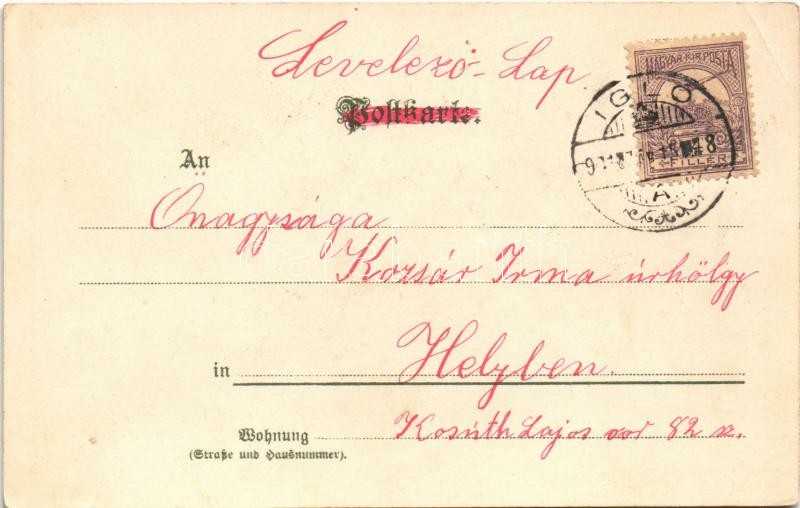 Levelező-Lap.
Postkarte.
MAGYAR KIR. POSTA
FILLÉR
IGLÓ
A
An
Önagysága
Kozsár Irma úrhölgy
in Helyben.
Wohnung Kosúth Lajos sor 82 sz.
(Straße und Hausnummer).